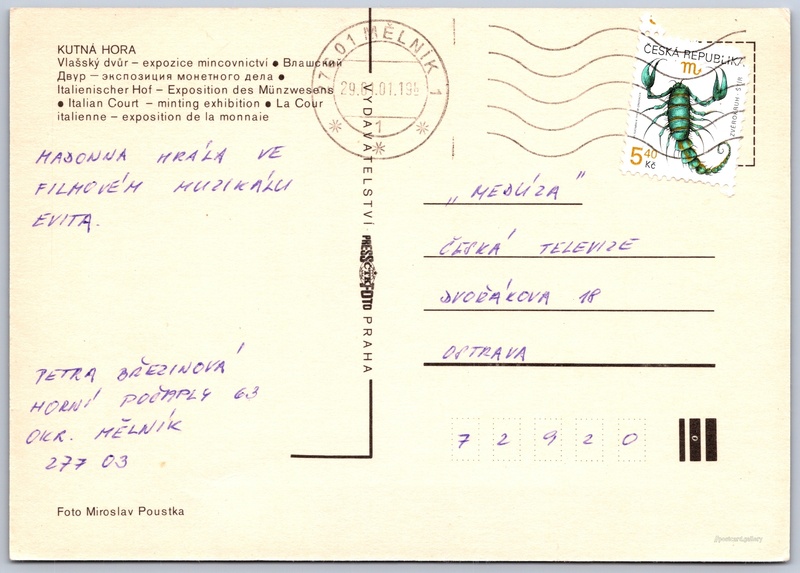 KUTNÁ HORA
Vlašský dvůr – expozice mincovnictví ● Влашский
Двур — экспозиция монетного дела ●
Italienischer Hof – Exposition des Münzwesens
● Italian Court – minting exhibition ● La Cour
italienne – exposition de la monnaie
MADONNA HRÁLA VE
FILMOVÉM MUZIKÁLU
EVITA.
PETRA BŘEZINOVÁ
HORNÍ POČAPLY 63
OKR. MĚLNÍK
277 03
Foto Miroslav Poustka
VYDAVATELSTVÍ PRESSFOTO PRAHA
ČTK
MĚLNÍK 1
1
ČESKÁ REPUBLIKA
5,40
Kč
„MEDÚZA"
ČESKÁ TELEVIZE
DVOŘÁKOVA 18
OSTRAVA
7 2 9 2 0